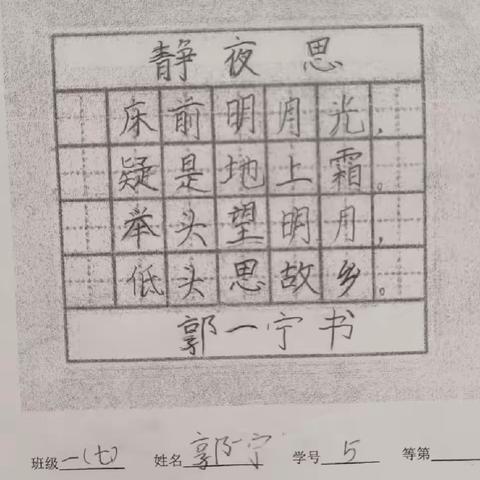 静夜思
床前明月光，
疑是地上霜。
举头望明月，
低头思故乡。
郭一宁书
班级一(七) 姓名郭一宁 学号5 等第